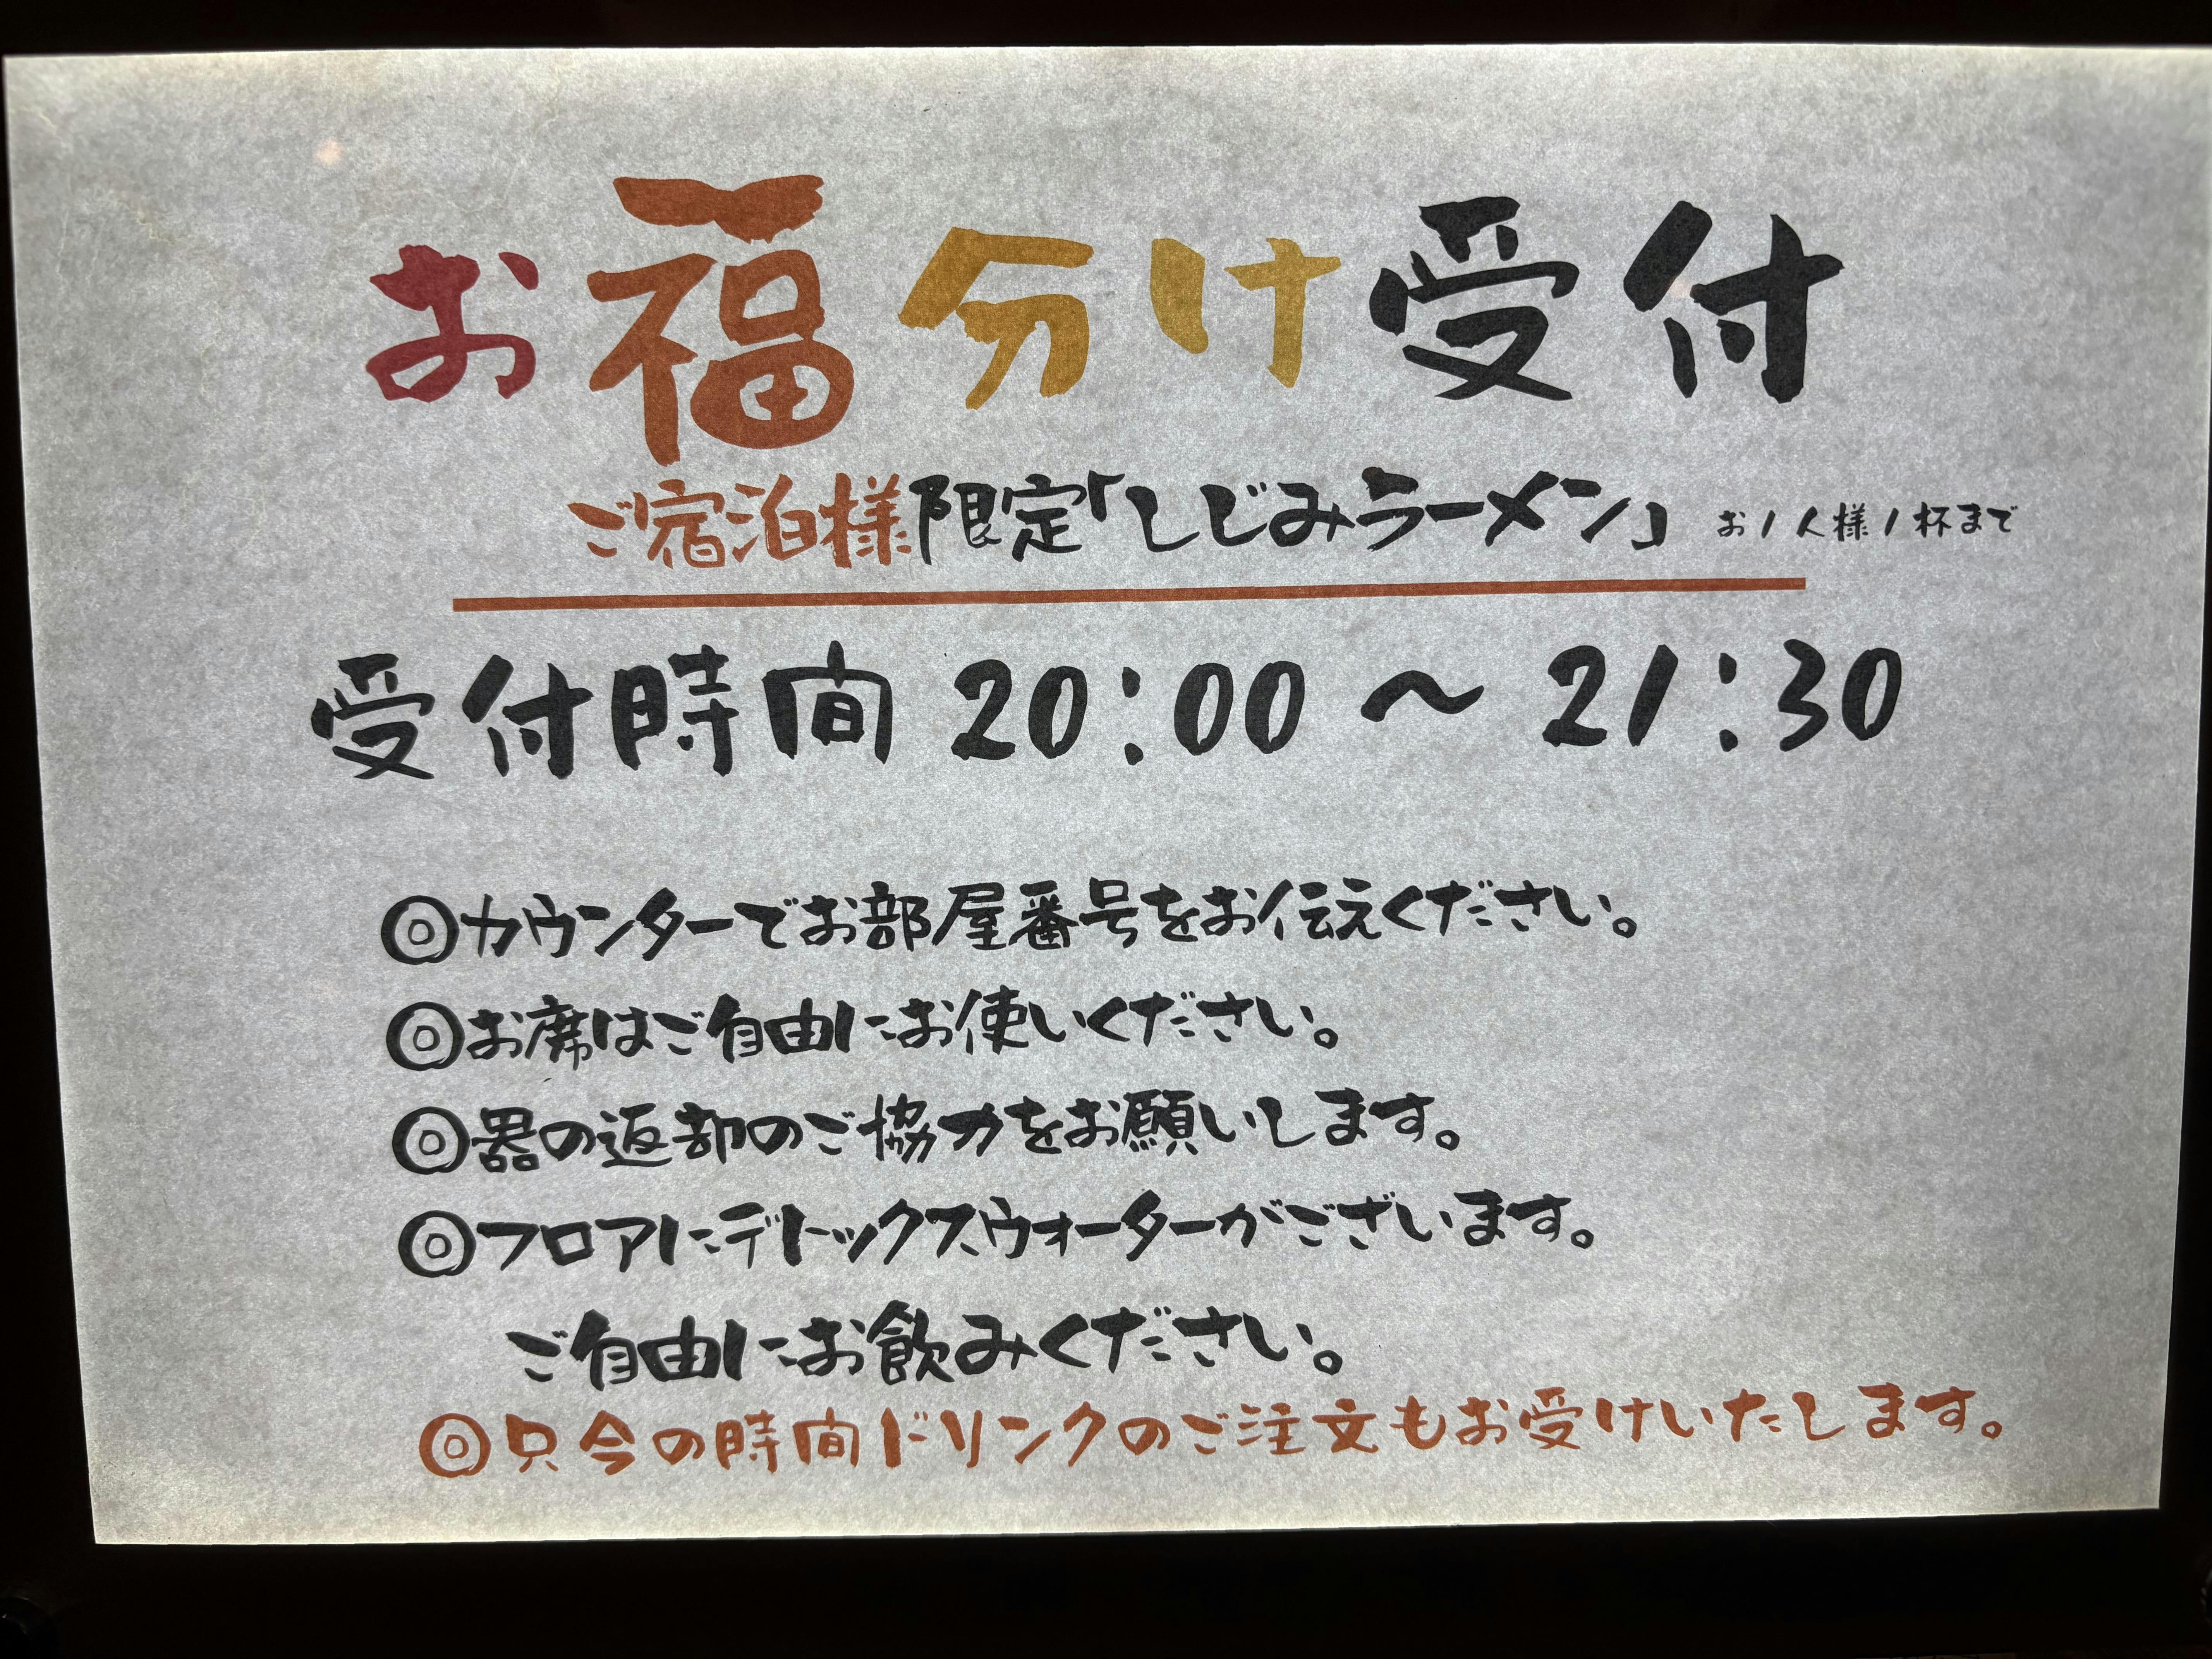 お福分け受付
ご宿泊様限定「しじみラーメン」 お1人様1杯まで
受付時間 20:00 ～ 21:30
◎カウンターでお部屋番号をお伝えください。
◎お席はご自由にお使いください。
◎器の返却のご協力をお願いします。
◎フロアにデトックスウォーターがございます。
ご自由にお飲みください。
◎只今の時間ドリンクのご注文もお受けいたします。